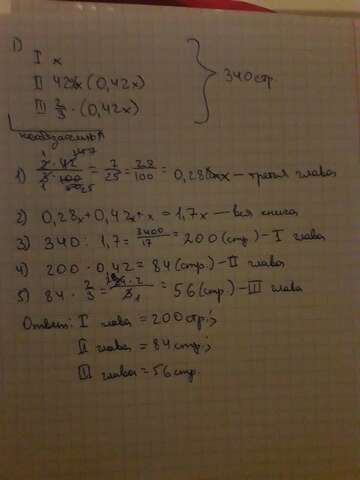 1)
I x
II 42% x (0,42x)
III 2/3 · (0,42x)
340 стр.
1) 2 · 42 / 3 · 100 = 7/25 = 28/100 = 0,28x — третья глава
2) 0,28x + 0,42x + x = 1,7x — вся книга
3) 340 : 1,7 = 3400/17 = 200 (стр.) — I глава
4) 200 · 0,42 = 84 (стр.) — II глава
5) 84 · 2/3 = 84 · 2 / 3 = 56 (стр.) — III глава
Ответ: I глава = 200 стр.;
II глава = 84 стр.;
III глава = 56 стр.